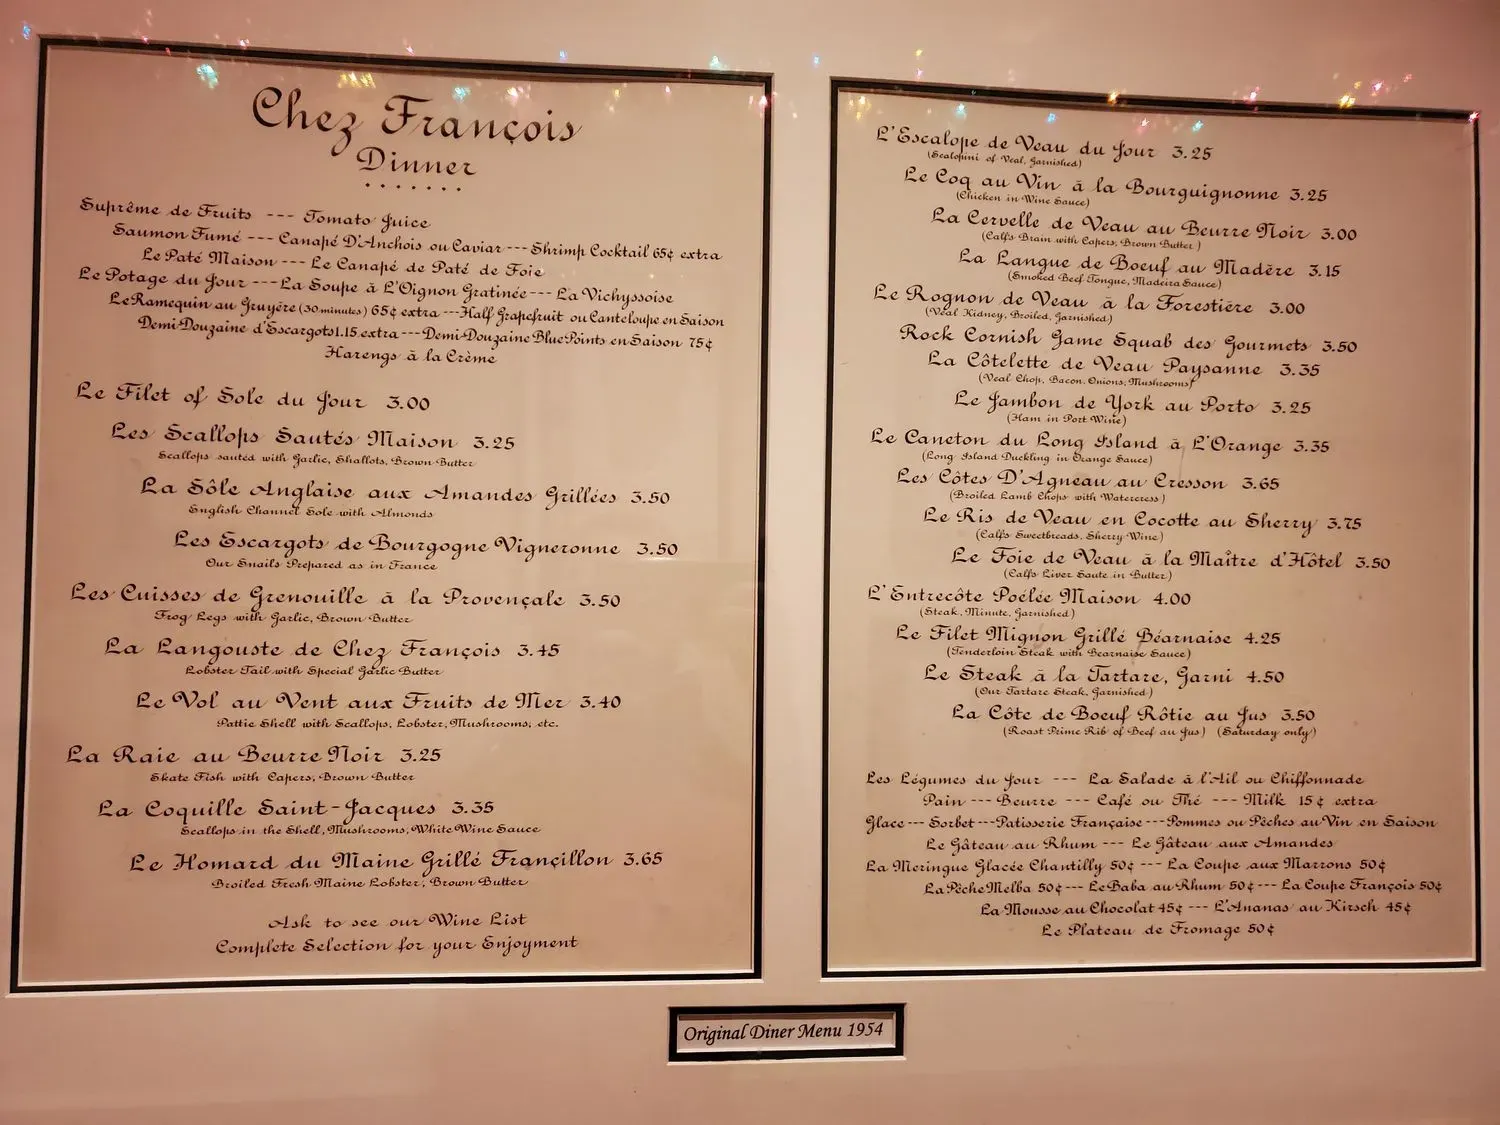 Chez François
Dinner
Suprême de Fruits --- Tomato Juice
Saumon Fumé --- Canapé D'Anchois ou Caviar --- Shrimp Cocktail 65¢ extra
Le Paté Maison --- Le Canapé de Paté de Foie
Le Potage du Jour --- La Soupe à L'Oignon Gratinée --- La Vichyssoise
Le Ramequin au Gruyère (30 minutes) 65¢ extra --- Half Grapefruit ou Canteloupe en Saison
Demi Douzaine d'Escargots 1.15 extra --- Demi Douzaine Blue Points en Saison 75¢
Harengs à la Crème
Le Filet of Sole du Jour 3.00
Les Scallops Sautés Maison 3.25
Scallops sauted with Garlic, Shallots, Brown Butter
La Sôle Anglaise aux Amandes Grillées 3.50
English Channel Sole with Almonds
Les Escargots de Bourgogne Vigneronne 3.50
Our Snails Prepared as in France
Les Cuisses de Grenouille à la Provençale 3.50
Frog Legs with Garlic, Brown Butter
La Langouste de Chez François 3.45
Lobster Tail with Special Garlic Butter
Le Vol au Vent aux Fruits de Mer 3.40
Pattie Shell with Scallops, Lobster, Mushrooms, etc.
La Raie au Beurre Noir 3.25
Skate Fish with Capers, Brown Butter
La Coquille Saint-Jacques 3.35
Scallops in the Shell, Mushrooms, White Wine Sauce
Le Homard du Maine Grillé Françillon 3.65
Broiled Fresh Maine Lobster, Brown Butter
Ask to see our Wine List
Complete Selection for your Enjoyment
L'Escalope de Veau du Jour 3.25
(Scalopini of Veal, Garnished)
Le Coq au Vin à la Bourguignonne 3.25
(Chicken in Wine Sauce)
La Cervelle de Veau au Beurre Noir 3.00
(Calfs Brain with Capers, Brown Butter)
La Langue de Boeuf au Madère 3.15
(Smoked Beef Tongue, Madeira Sauce)
Le Rognon de Veau à la Forestière 3.00
(Veal Kidney, Broiled, Garnished)
Rock Cornish Game Squab des Gourmets 3.50
La Côtelette de Veau Paysanne 3.35
(Veal Chop, Bacon, Onions, Mushrooms)
Le Jambon de York au Porto 3.25
(Ham in Port Wine)
Le Caneton du Long Island à L'Orange 3.35
(Long Island Duckling in Orange Sauce)
Les Côtes D'Agneau au Cresson 3.65
(Broiled Lamb Chops with Watercress)
Le Ris de Veau en Cocotte au Sherry 3.75
(Calfs Sweetbreads, Sherry Wine)
Le Foie de Veau à la Maître d'Hôtel 3.50
(Calfs Liver Saute in Butter)
L'Entrecôte Poélée Maison 4.00
(Steak, Minute, Garnished)
Le Filet Mignon Grillé Béarnaise 4.25
(Tenderloin Steak with Bearnaise Sauce)
Le Steak à la Tartare, Garni 4.50
(Our Tartare Steak, Garnished)
La Côte de Boeuf Rôtie au Jus 3.50
(Roast Prime Rib of Beef au Jus) (Saturday only)
Les Légumes du Jour --- La Salade à l'Ail ou Chiffonnade
Pain --- Beurre --- Café ou Thé --- Milk 15¢ extra
Glace --- Sorbet --- Patisserie Française --- Pommes ou Pêches au Vin en Saison
Le Gâteau au Rhum --- Le Gâteau aux Amandes
La Meringue Glacée Chantilly 50¢ --- La Coupe aux Marrons 50¢
La Pêche Melba 50¢ --- Le Baba au Rhum 50¢ --- La Coupe François 50¢
La Mousse au Chocolat 45¢ --- L'Ananas au Kirsch 45¢
Le Plateau de Fromage 50¢
Original Diner Menu 1954